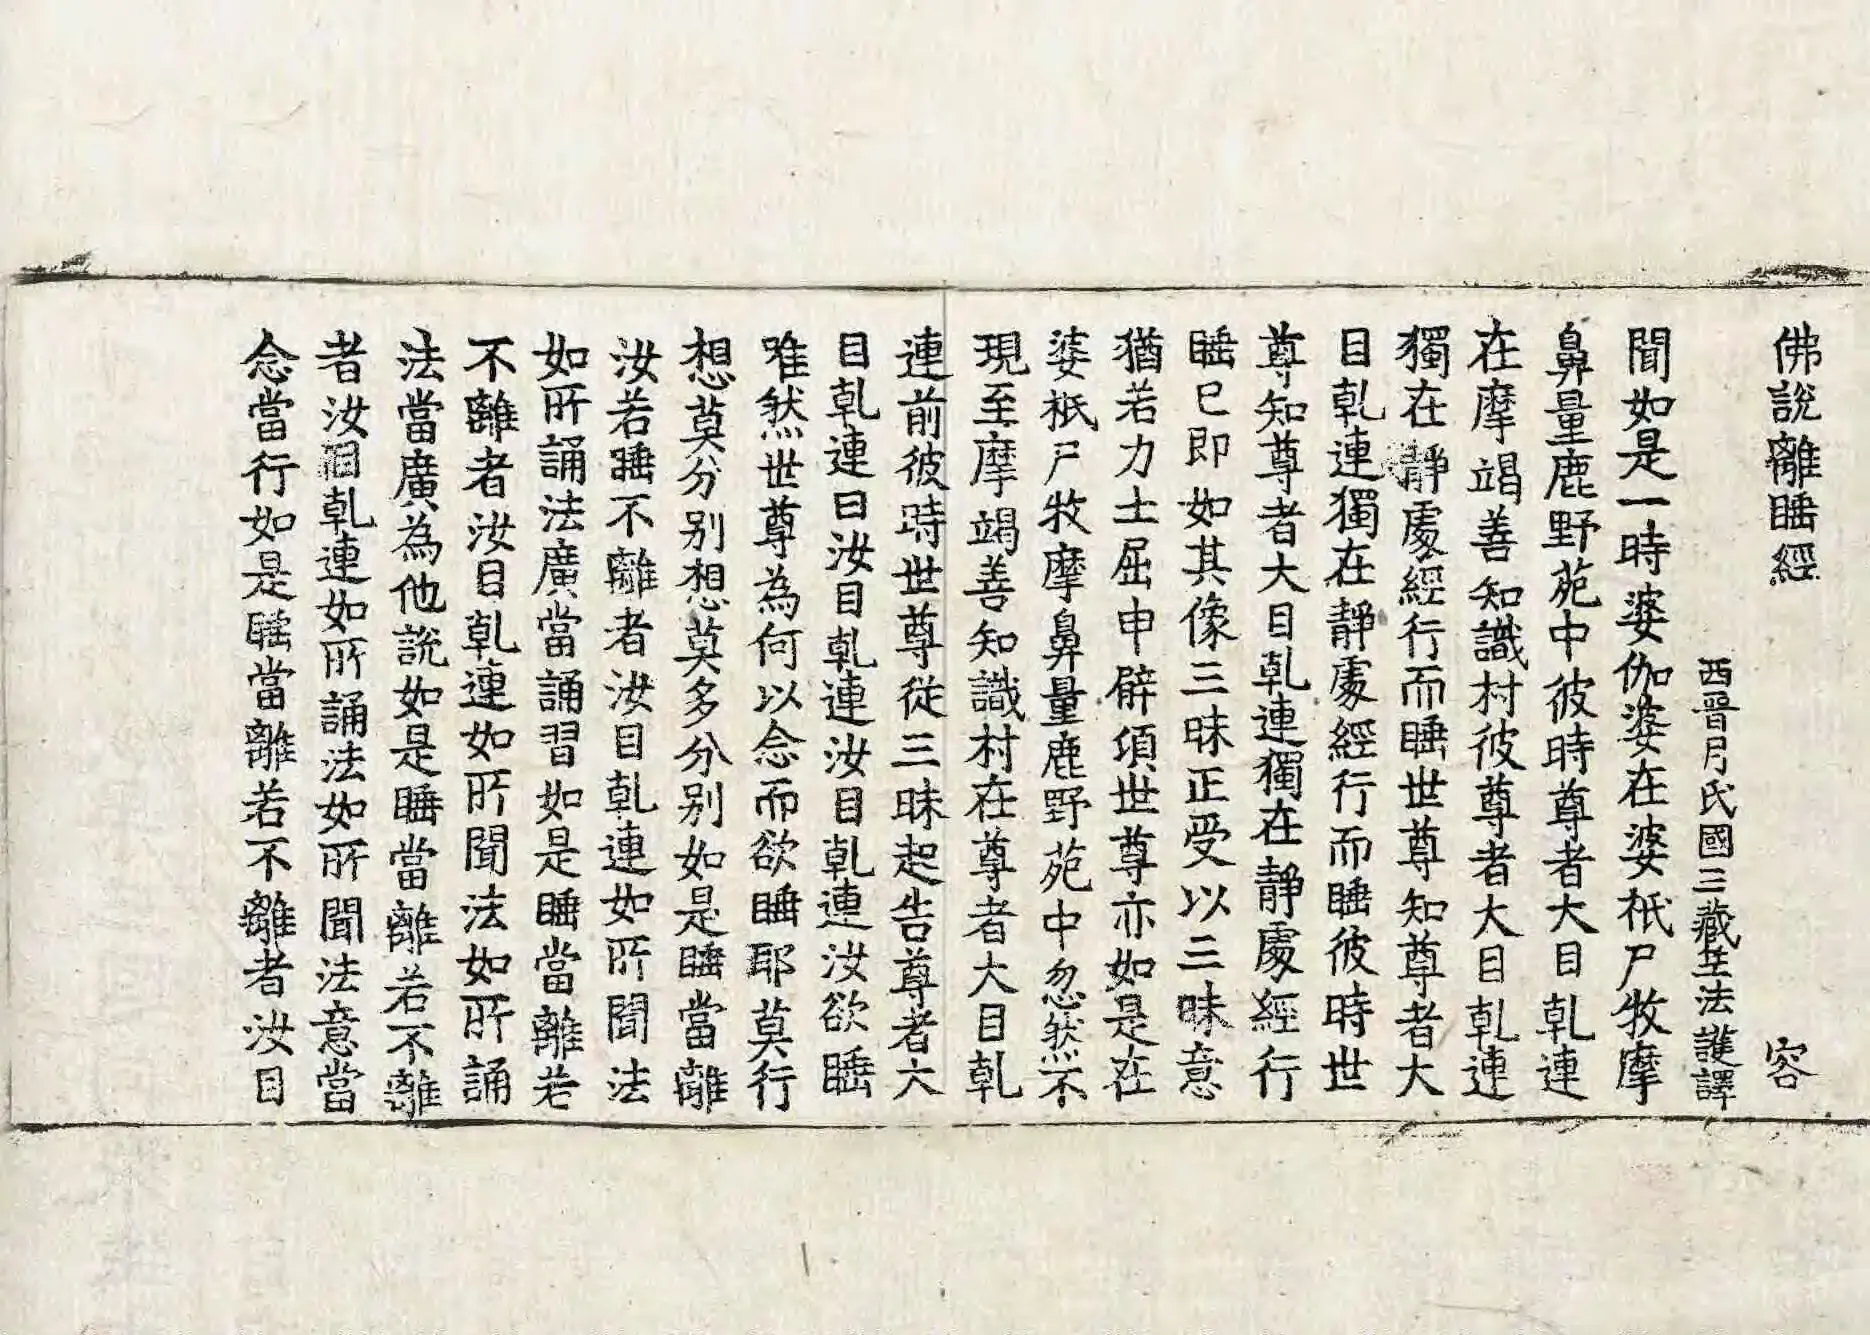 佛說離睡經 容
西晉月氏國三藏竺法護譯
聞如是一時婆伽婆在婆祇尸牧摩
鼻量鹿野苑中彼時尊者大目乹連
在摩竭善知識村彼尊者大目乹連
獨在靜處經行而睡世尊知尊者大
目乹連獨在靜處經行而睡彼時世
尊知尊者大目乹連獨在靜處經行
睡已即如其像三昧正受以三昧意
猶若力士屈申臂頃世尊亦如是在
婆祇尸牧摩鼻量鹿野苑中忽然不
現至摩竭善知識村在尊者大目乹
連前彼時世尊從三昧起告尊者大
目乹連曰汝目乹連汝目乹連汝欲睡
唯然世尊為何以念而欲睡耶莫行
想莫分別想莫多分別如是睡當離
汝若睡不離者汝目乹連如所聞法
如所誦法廣當誦習如是睡當離若
不離者汝目乹連如所聞法如所誦
法當廣為他說如是睡當離若不離
者汝目乹連如所誦法如所聞法意當
念當行如是睡當離若不離者汝目